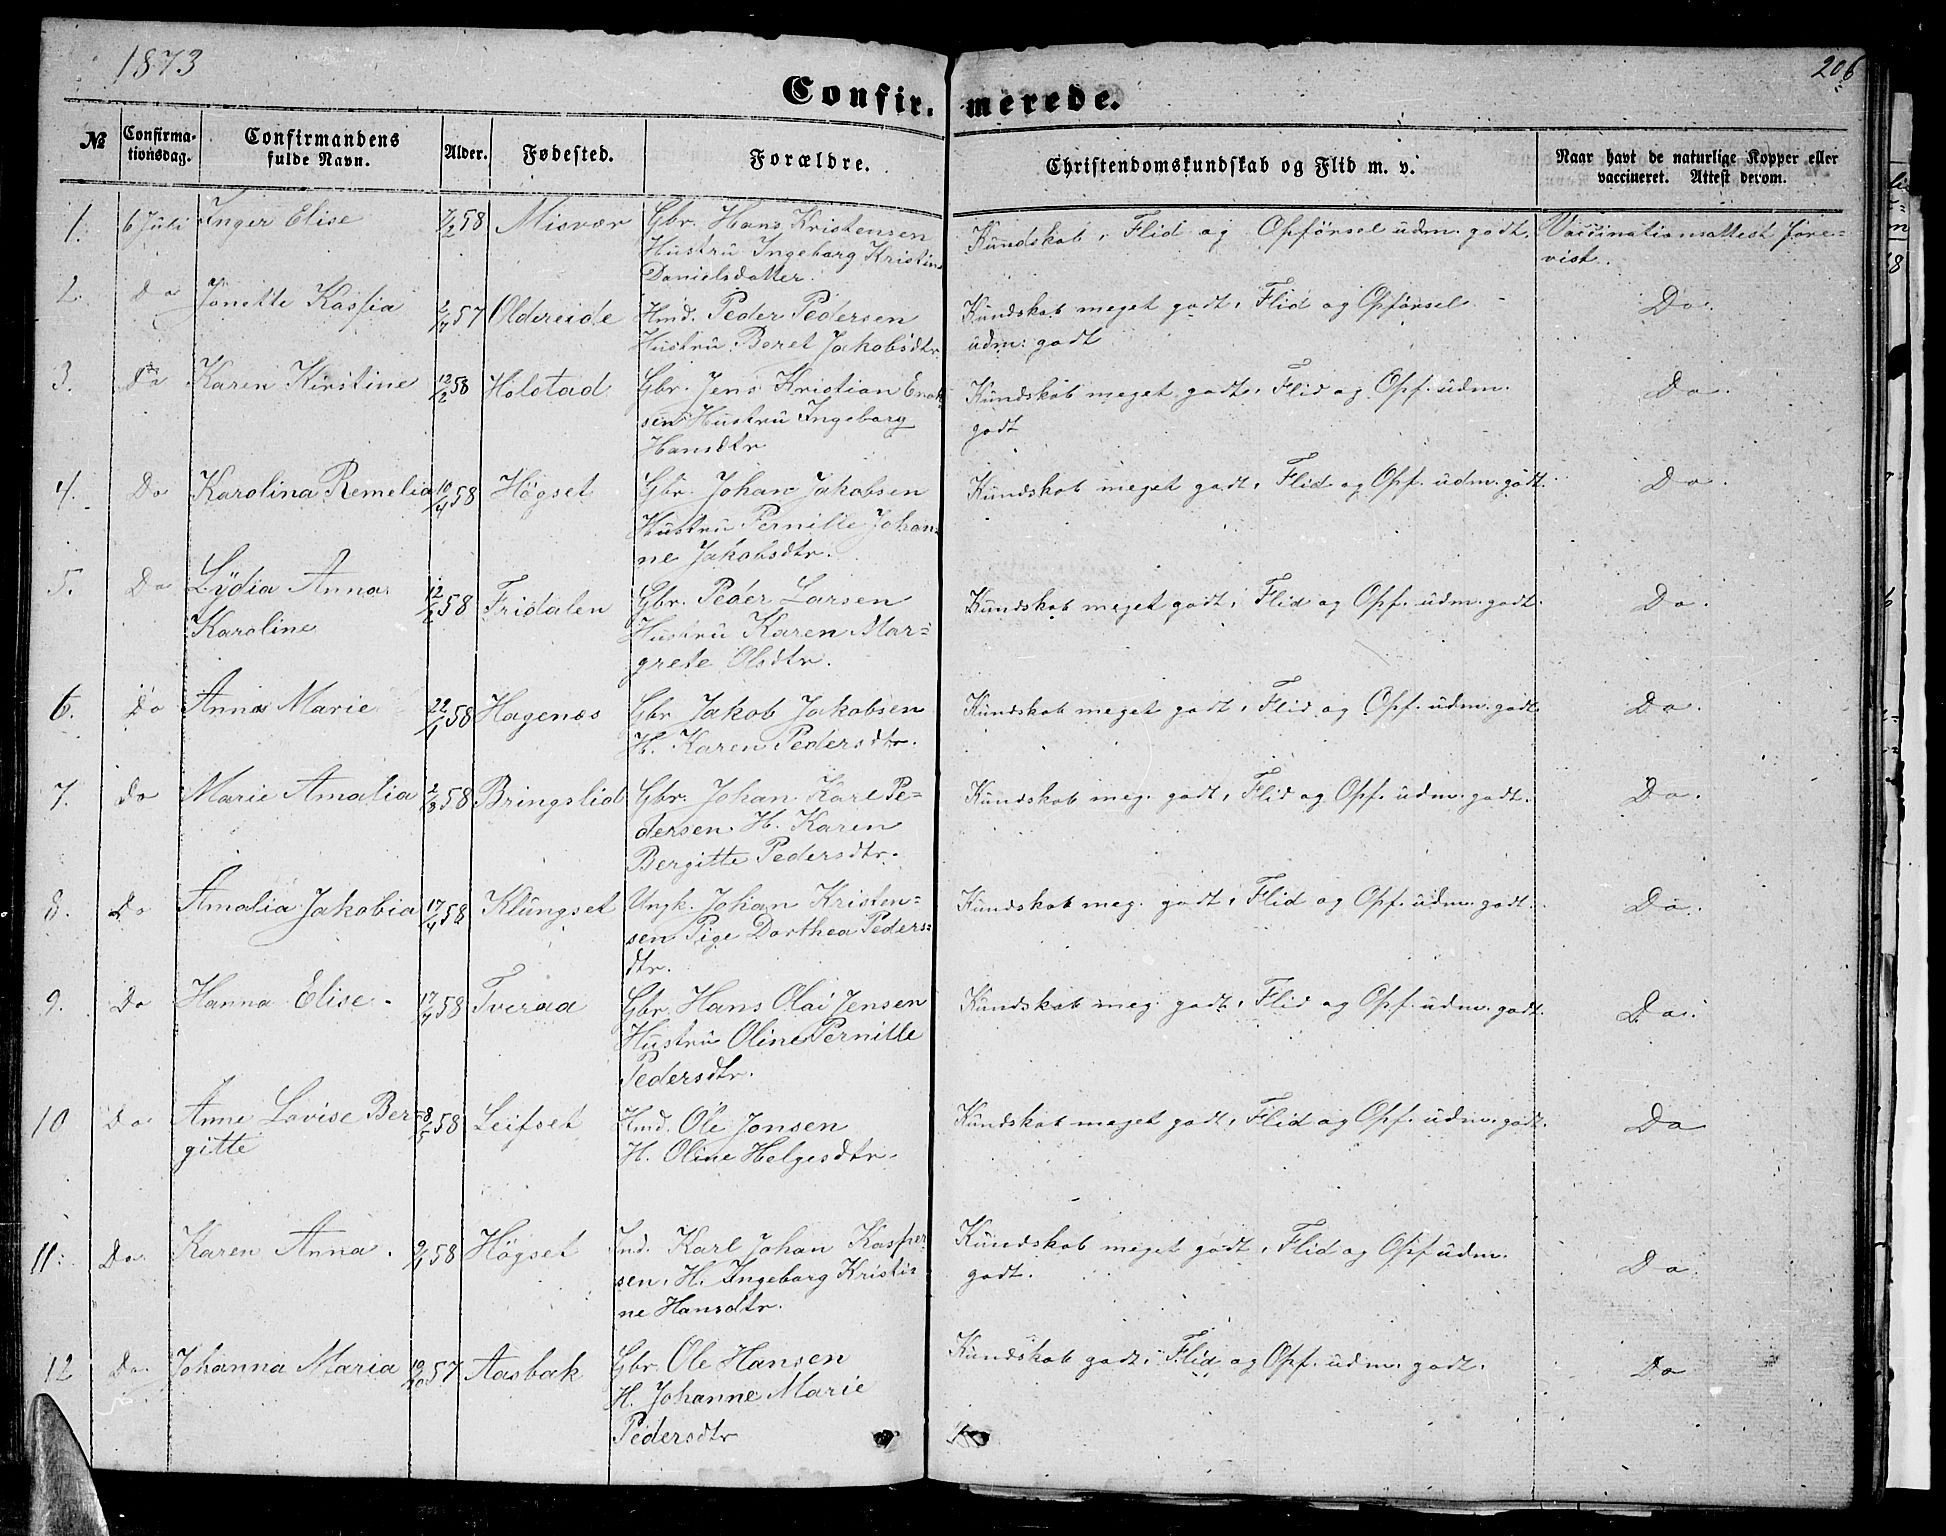 1873
206
Confirmerede.
№ Confirmationsdag. Confirmandens fulde Navn. Alder. Fødested. Forældre. Christendomskundskab og Flid m. v. Naar havt de naturlige Kopper eller vaccineret. Attest derom.
1. 6 Juli Inger Elise 7/2 58 Misvær Gbr. Hans Kristensen Kundskab, Flid og Opførsel udm. godt. Vaccinationsattest fore-
Hustru Ingeborg Kristine vist.
Danielsdatter.
2. Do Jonette Kassia 2/7 57 Oldereide Hmd. Peder Pedersen Kundskab meget godt, Flid og Opförsel Do.
Hustru Beret Jakobsdtr udm: godt
3. Do Karen Kirstine 12/2 58 Holstad Gbr. Jens Kristian Enok- Kundskab meget godt, Flid og Opf. udm. Do.
sen Hustru Ingeborg godt
Hansdtr
4. Do Karolina Remelia 10/4 58 Högset Gbr. Johan Jakobsen Kundskab meget godt, Flid og Opf. udm. godt. Do.
Hustru Pernille Johan-
ne Jakobsdtr.
5. Do Lydia Anna 12/2 58 Fridalen Gbr. Peder Larsen Kundskab meget godt, Flid og Opf. udm. godt. Do.
Karoline Hustru Karen Mar-
grete Olsdtr.
6. Do Anna Marie 22/1 58 Hagenæs Gbr Jakob Jakobsen Kundskab meget godt, Flid og Opf. udm. godt Do.
H. Karen Pedersdtr.
7. Do Marie Amalia 2/3 58 Bringslid Gbr. Johan Karl Pe- Kundskab meg. godt, Flid og Opf. udm. godt. Do.
dersen. H. Karen
Bergitte Pedersdtr.
8. Do Amalia Jakobia 17/4 58 Klungset Ungk. Johan Kristen- Kundskab meg. godt, Flid og Opf. udm. godt. Do.
sen Pige Dorthea Peders-
dtr.
9. Do Hanna Elise. 17/4 58 Tveraa Gbr. Hans Olai Jensen Kundskab meg. godt, Flid og Opf. udm. godt. Do.
Hustru Oline Pernille
Pedersdtr.
10 Do Anne Lovise Ber- 8/5 58 Leifset Hmd. Ole Jonsen Kundskab meget godt, Flid og Opf. udm. godt. Do
gitte H. Oline Helgesdtr.
11. Do. Karen Anna. 9/1 58 Högset Ind. Karl Johan Kasper- Kundskab meget godt, Flid og Opf udm. Do
sen, H. Ingeborg Kristi- godt.
ne Hansdtr.
12 Do. Johanna Maria 19/10 57 Aasbak Gbr. Ole Hansen Kundskab godt, Flid og Opf. udm. godt. Do
H. Johanne Marie
Pedersdtr